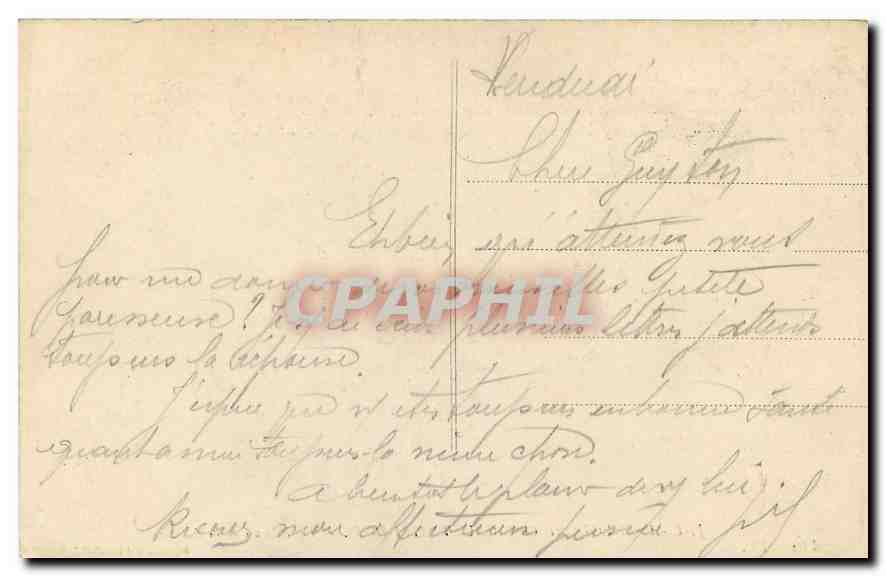 Vendredi
Chere
Eh bien qu'attendez vous
pour me donner de vos nouvelles petite
paresseuse ? plusieurs lettres j'attends
toujours la réponse.
J'espère que toujours en bonne santé
quant a moi toujours la même chose.
a bientot le plaisir de vs lire
Recevez mon affection
CPAPHIL